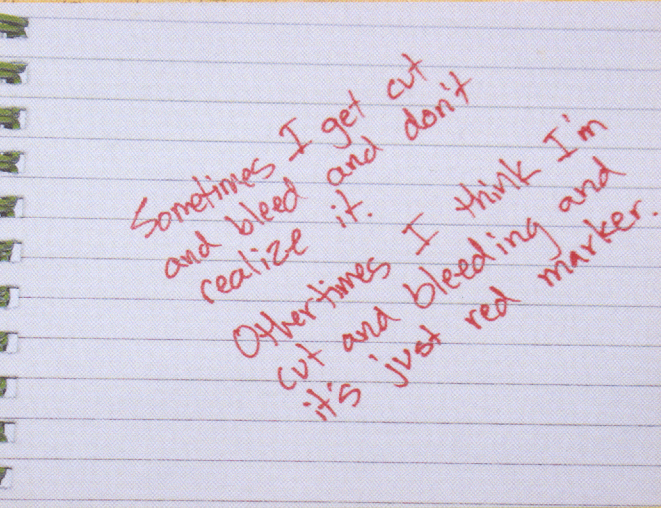 Sometimes I get cut
and bleed and don't
realize it.
Othertimes I think I'm
cut and bleeding and
it's just red marker.